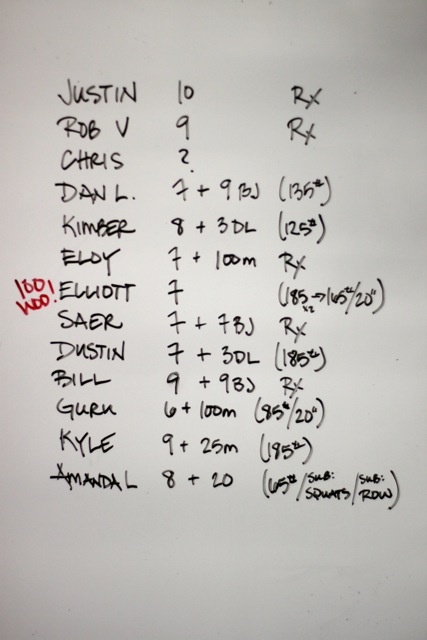 JUSTIN 10 Rx
ROB V 9 Rx
CHRIS ?
DAN L. 7 + 9 BJ (135#)
KIMBER 8 + 3DL (125#)
ELOY 7 + 100m Rx
100! WOO! ELLIOTT 7 (185 x2 → 165#/20")
SAER 7 + 7BJ Rx
DUSTIN 7 + 3DL (185#)
BILL 9 + 9BJ Rx
GURU 6 + 100m (85#/20")
KYLE 9 + 25m (185#)
AMANDA L 8 + 20 (65#/SUB: SQUATS/SUB: ROW)